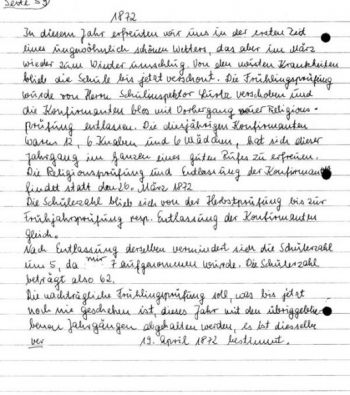 Seite 59
1872
In diesem Jahr erfreuten wir uns in der ersten Zeit
eines ungewöhnlich schönen Wetters, das aber im März
wieder zum Winter umschlug. Von den meisten Krankheiten
blieb die Schule bis jetzt verschont. Die Frühlingsprüfung
wurde von Herrn Schulinspektor verschoben und
die Konfirmanten blos mit Vorhergang einer Religions-
prüfung entlassen. Die diesjährigen Konfirmanten
waren 12, 6 Knaben und 6 Mädchen, hat sich dieser
Jahrgang im Ganzen eines guten Rufes zu erfreuen.
Die Religionsprüfung und Entlassung der Konfirmanten
findet statt den 20. März 1872
Die Schülerzahl blieb sich von der Herbstprüfung bis zur
Frühjahrprüfung resp. Entlassung der Konfirmanten
gleich.
Nach Entlassung derselben vermindert sich die Schülerzahl
um 5, da nur 7 aufgenommen wurde. Die Schülerzahl
beträgt also 62.
Die nachträgliche Frühlingsprüfung soll, was bis jetzt
noch nie geschehen ist, dieses Jahr mit den übriggeblie-
benen Jahrgängen abgehalten werden, es ist dieselbe
19. April 1872 bestimmt.